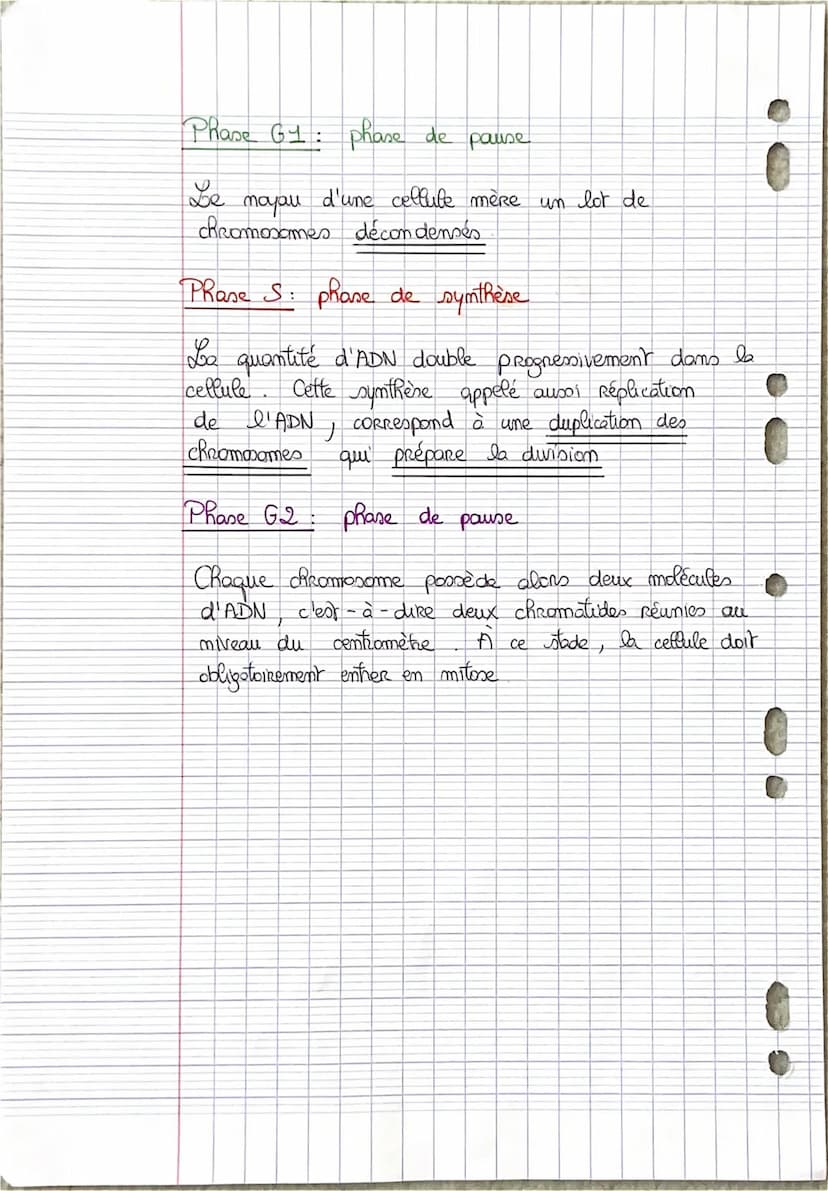 Phase G1 : phase de pause
Le noyau d'une cellule mère un lot de
chromosomes décondensés
Phase S : phase de synthèse
La quantité d'ADN double progressivement dans la
cellule . Cette synthèse appelé aussi réplication
de l'ADN , correspond à une duplication des
chromosomes qui prépare la division
Phase G2 : phase de pause
Chaque chromosome possède alors deux molécules
d'ADN , c'est - à - dire deux chromatides réunies au
niveau du centromètre . À ce stade , la cellule doit
obligatoirement entrer en mitose